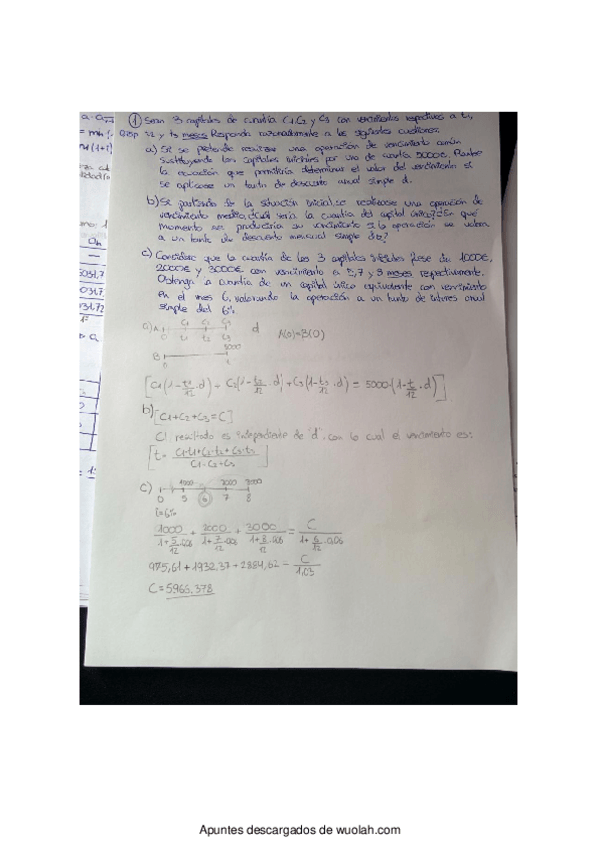 ① Sean 3 capitales de cuantía C1, C2 y C3 con vencimientos respectivos a t1,
t2 y t3 meses. Responda razonadamente a las siguientes cuestiones:
a) Si se pretende realizar una operación de vencimiento común
sustituyendo los capitales iniciales por uno de cuantía 5000€. Plantee
la ecuación que permitiría determinar el valor del vencimiento si
se aplicase un tanto de descuento anual simple d.
b) Si partiendo de la situación inicial, se realizase una operación de
vencimiento medio, ¿cuál sería la cuantía del capital único? ¿En qué
momento se produciría su vencimiento si la operación se valora
a un tanto de descuento mensual simple
c) Considere que la cuantía de los 3 capitales iniciales fuese de: 1000€,
2000€ y 3000€ con vencimiento a 5, 7 y 8 meses respectivamente.
Obtenga la cuantía de un capital único equivalente con vencimiento
en el mes 6, valorando la operación a un tanto de interés anual
simple del 6%
a) A C1 C2 C3 d A(0)=B(0)
0 t1 t2 t3
5000
B
0 t
[C1(1-t1/12·d) + C2(1-t2/12·d) + C3(1-t3/12·d) = 5000·(1-t/12·d)]
b) [C1+C2+C3=C]
El resultado es independiente de "d", con lo cual el vencimiento es:
[t = C1·t1+C2·t2+C3·t3 / C1+C2+C3]
c) 1000 2000 3000
0 5 6 7 8
i=6%
1000/1+5/12·0,06 + 2000/1+7/12·0,06 + 3000/1+8/12·0,06 = C/1+6/12·0,06
975,61+1932,37+2884,62 = C/1,03
C=5966,378
Apuntes descargados de wuolah.com